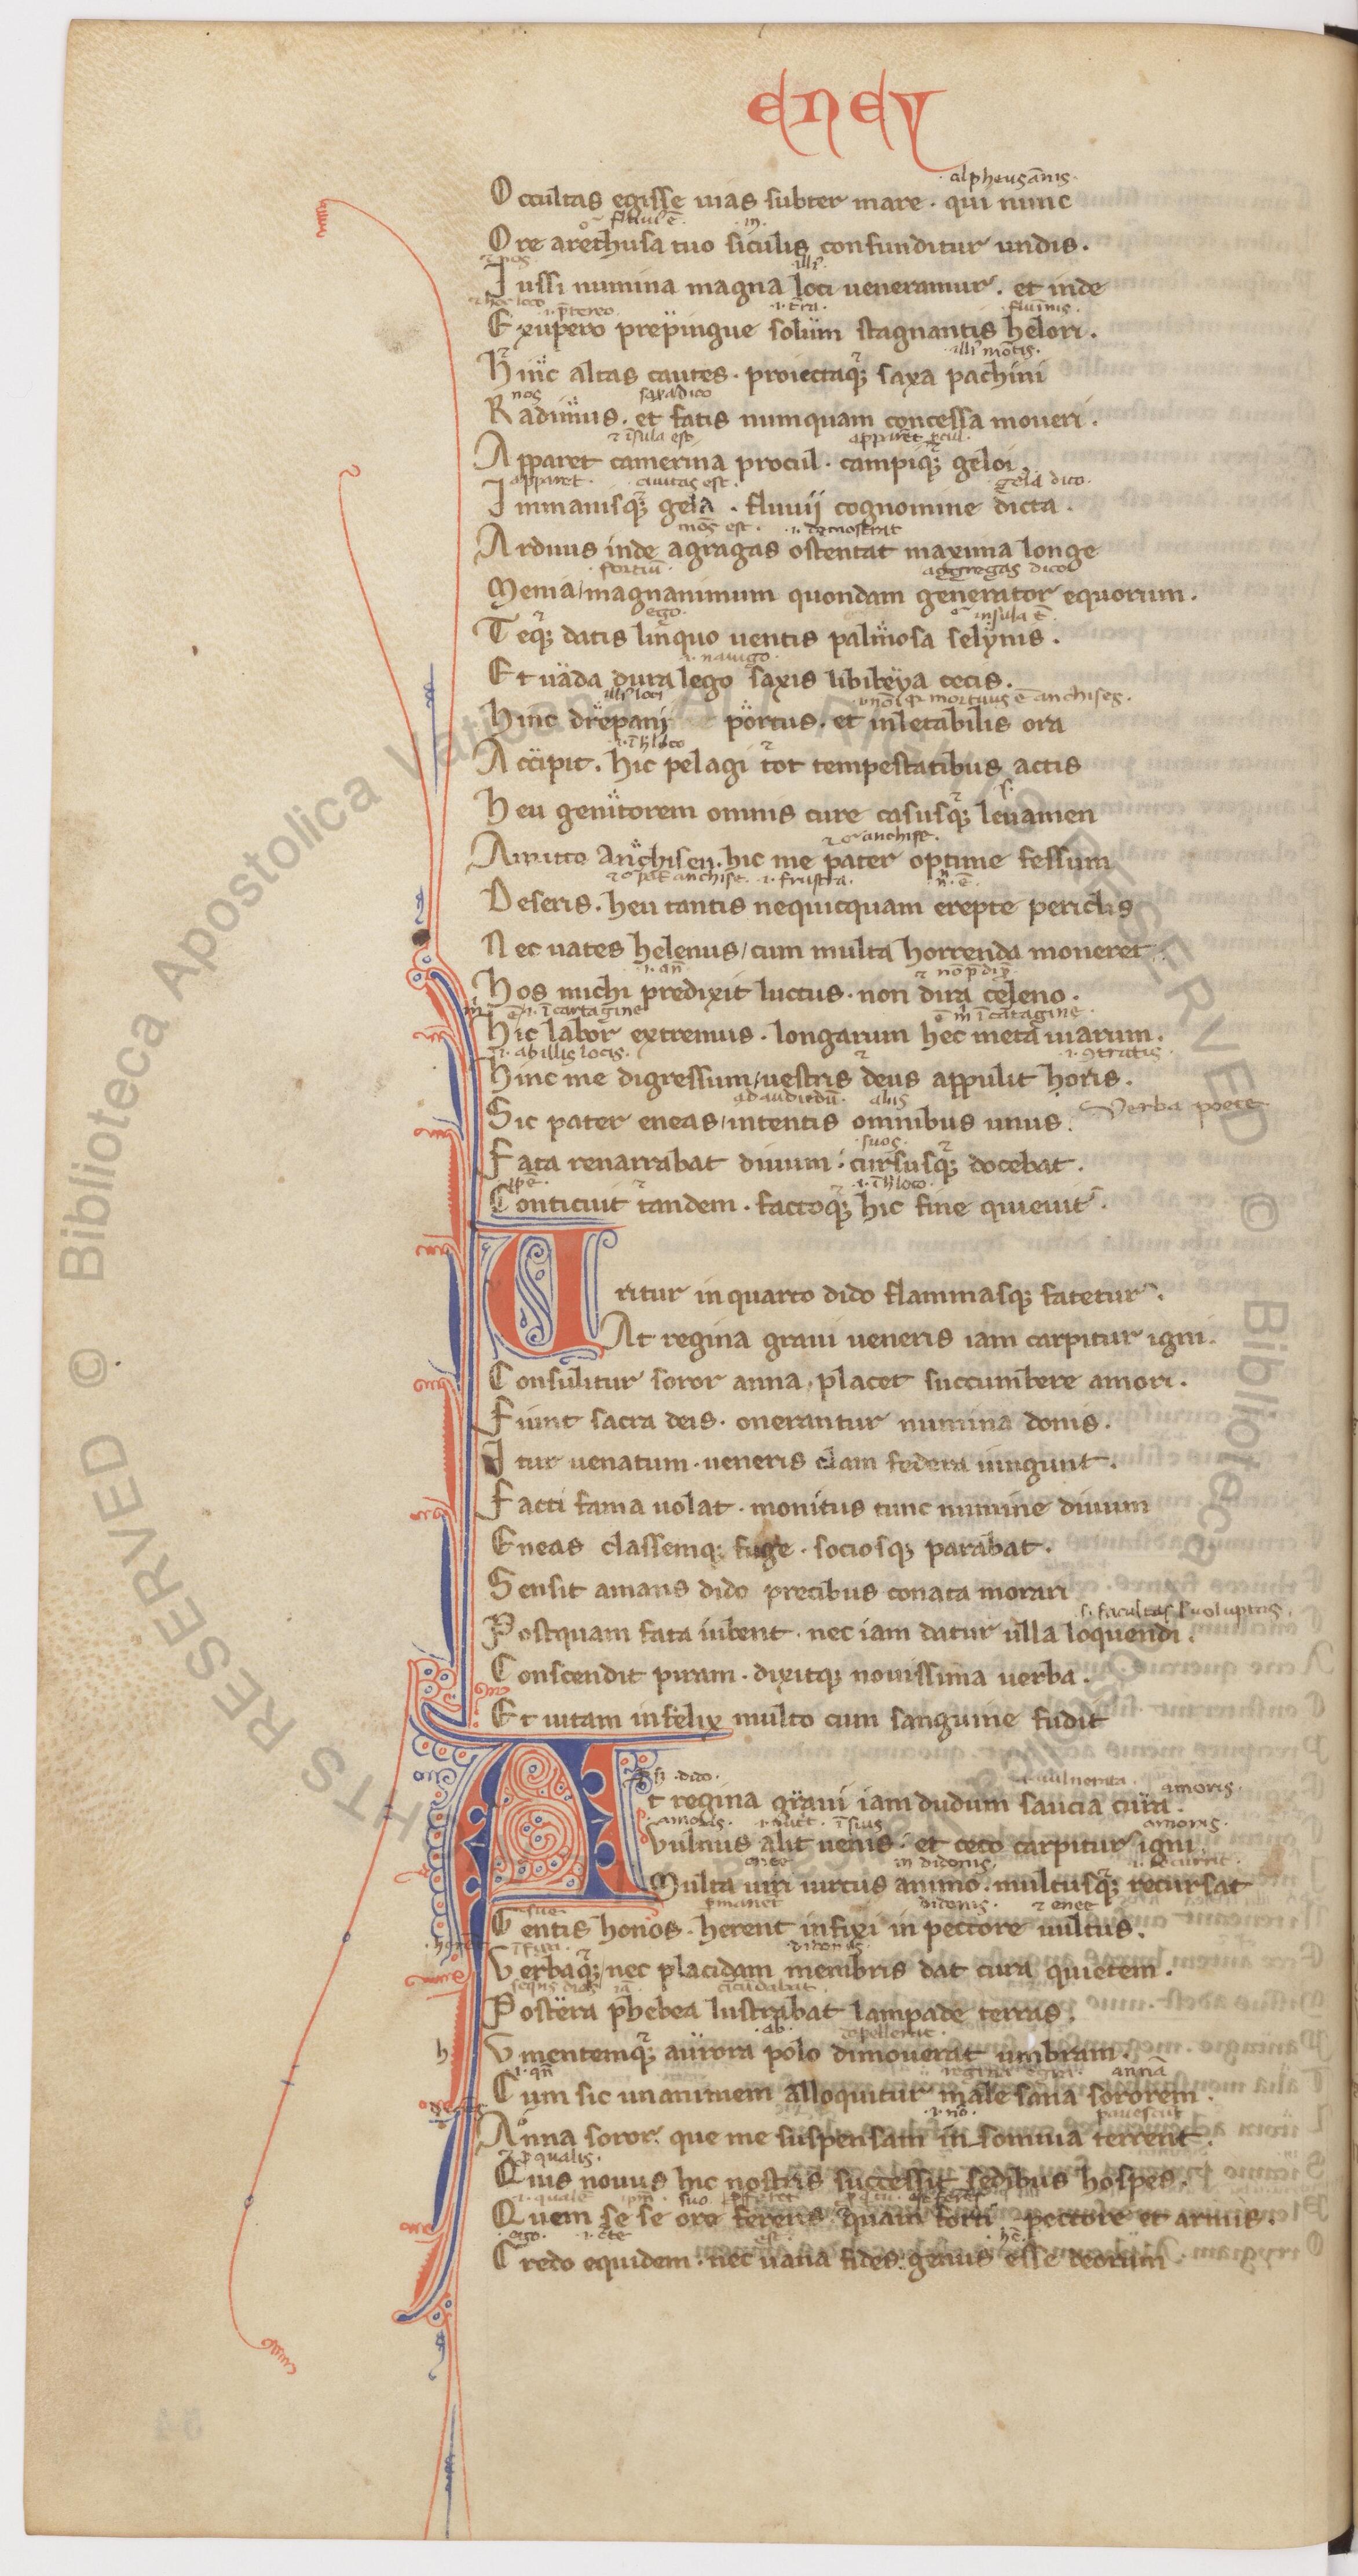 eney
alpheus ānis
Occultas egisse uias subter mare. qui nunc
Ore arethusa tuo siculis confunditur undis.
Iussi numina magna loci ueneramur. et inde
Exupero prepingue solum stagnantis helori.
Hinc altas cautes. proiectaq; saxa pachini
Radimus. et fatis numquam concessa moueri.
Apparet camerina procul. campiq; geloi.
apparet. ciuitas est. gela dico.
Immanisq; gela. fluuij cognomine dicta.
Arduus inde agragas ostentat maxima longe
aggregas dico
Menia/magnanimum quondam generator equorum.
ego. insula ē.
Teq; datis linquo uentis palmosa selynis.
nauigo.
Et uada dura lego saxis libibeya cecis.
mortuus ē anchises.
Hinc drepanij portus. et inletabilis ora
Accipit. hic pelagi tot tempestatibus actis
Heu genitorem omnis cure casusq; leuamen
anchise.
Amitto Anchisen. hic me pater optime fessum
anchise. i. frustra.
Deseris. heu tantis nequicquam erepte periclis
Nec uates helenus/cum multa horrenda moneret.
Hos michi predixit luctus. non dira celeno.
Hic labor extremus. longarum hec meta uiarum.
ab illis locis.
Hinc me digressum/uestris deus appulit horis.
ad audiendū. aliis
Sic pater eneas/intentis omnibus unus. Verba poete
suos.
Fata renarrabat diuum. cursusq; docebat.
Conticuit tandem. factoq; hic fine quieuit.
Uritur in quarto dido flammasq; fatetur.
At regina graui ueneris iam carpitur igni.
Consulitur soror anna, placet succumbere amori.
Fiunt sacra deis. onerantur numina donis.
Itur uenatum. ueneris clam federa iungunt.
Facti fama uolat. monitus tunc numine diuum
Eneas classemq; fuge. sociosq; parabat.
Sensit amans dido precibus conata morari
Postquam fata iubent. nec iam datur ulla loquendi.
Conscendit piram. dixitq; nouissima uerba.
Et uitam infelix multo cum sanguine fudit
dido. uulnerata. amoris.
At regina graui iam dudum saucia cura.
amoris. amoris.
Vulnus alit uenis. et ceco carpitur igni.
enee in didonis.
Multa uiri uirtus animo. multusq; recursat
didonis. enee
Gentis honos. herent infixi in pectore uultus.
didonis.
Verbaq; nec placidam membris dat cura quietem.
Postera phebea lustrabat lampade terras.
ab. depellerat.
h Vmentemq; aurora polo dimouerat umbram.
annā
Cum sic unanimem alloquitur male sana sororem.
Anna soror. que me suspensam in somnia terrent.
qualis.
Quis nouus hic nostris successit sedibus hospes.
Quem se se ore ferens. quam forti pectore et armis.
ego.
Credo equidem. nec uana fides. genus esse deorum